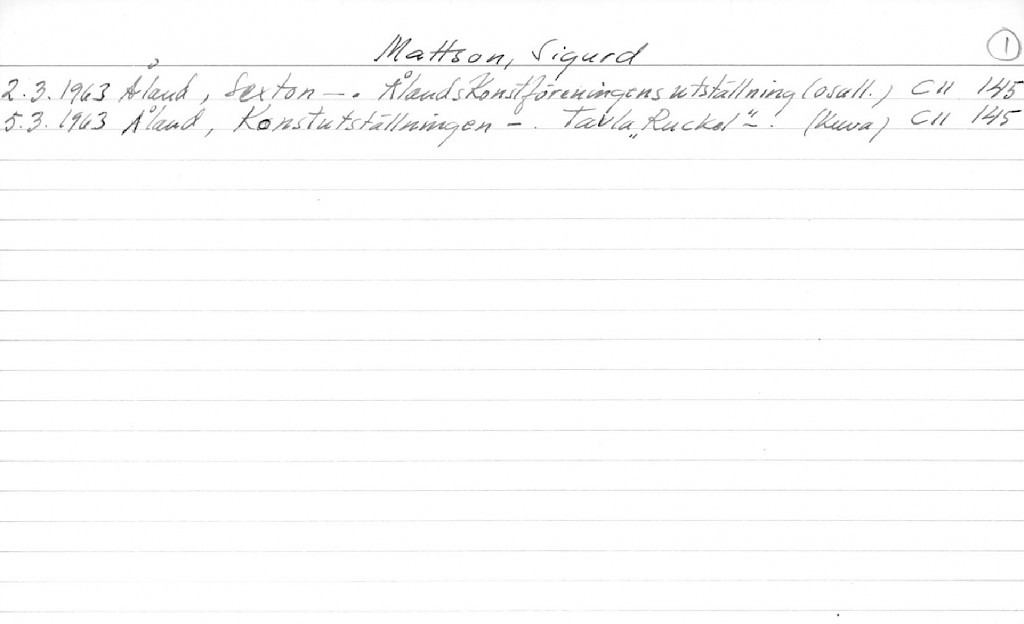 Mattson, Sigurd
1
2.3.1963 Åland, Sexton —. Ålands Konstföreningens utställning (osall.) C11 145
5.3.1963 Åland, Konstutställningen —. Tavla „Ruckel" —. (Kuva) C11 145